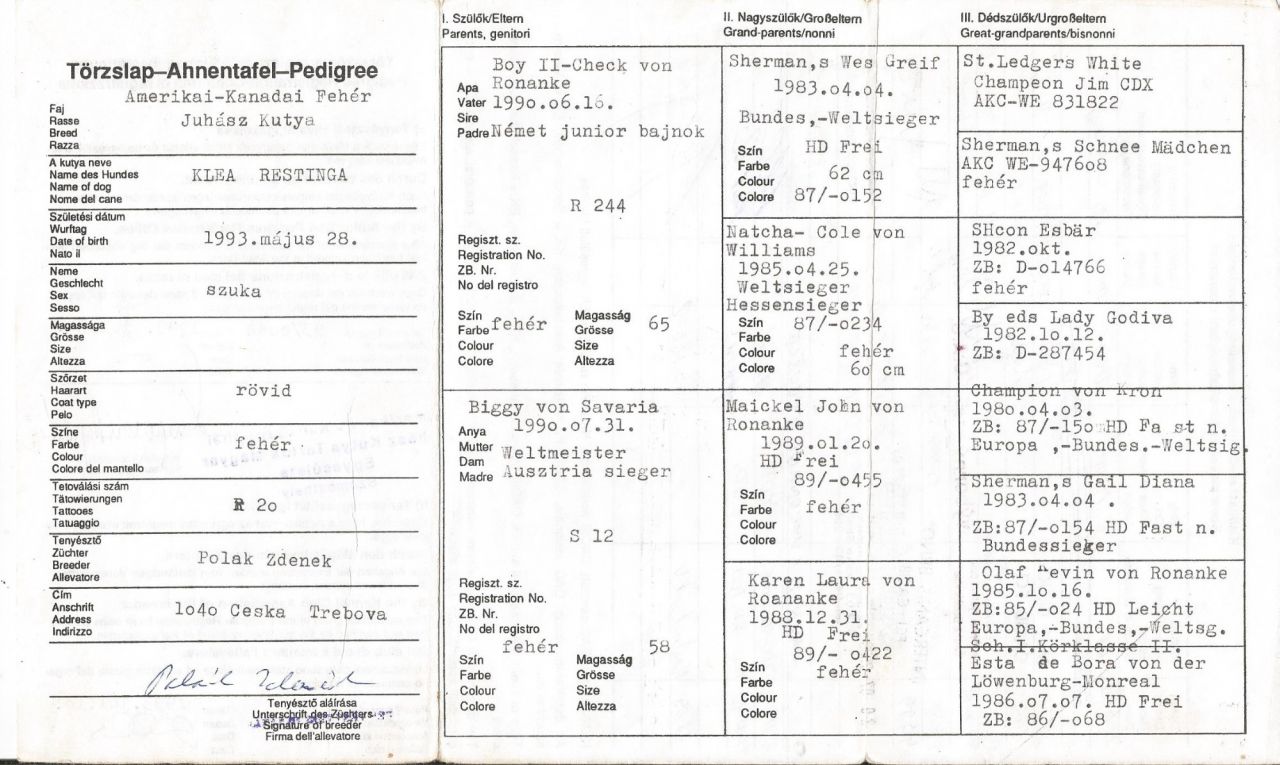 Törzslap–Ahnentafel–Pedigree
Amerikai-Kanadai Fehér
Faj
Rasse
Breed
Razza
Juhász Kutya
A kutya neve
Name des Hundes
Name of dog
Nome del cane
KLEA RESTINGA
Születési dátum
Wurftag
Date of birth
Nato il
1993.május 28.
Neme
Geschlecht
Sex
Sesso
szuka
Magassága
Grösse
Size
Altezza
Szőrzet
Haarart
Coat type
Pelo
rövid
Színe
Farbe
Colour
Colore del mantello
fehér
Tetoválási szám
Tätowierungen
Tattooes
Tatuaggio
R 2o
Tenyésztő
Züchter
Breeder
Allevatore
Polak Zdenek
Cím
Anschrift
Address
Indirizzo
1o4o Ceska Trebova
Polák Zdeněk
Tenyésztő aláírása
Unterschrift des Züchters
Signature of breeder
Firma dell'allevatore
I. Szülők/Eltern
Parents, genitori
Boy II-Check von
Ronanke
Apa
Vater
Sire
Padre
199o.o6.16.
Német junior bajnok
R 244
Regiszt. sz.
Registration No.
ZB. Nr.
No del registro
Szín
Farbe
Colour
Colore
fehér
Magasság
Grösse
Size
Altezza
65
Biggy von Savaria
199o.o7.31.
Anya
Mutter
Dam
Madre
Weltmeister
Ausztria sieger
S 12
Regiszt. sz.
Registration No.
ZB. Nr.
No del registro
fehér
Szín
Farbe
Colour
Colore
58
Magasság
Grösse
Size
Altezza
II. Nagyszülők/Großeltern
Grand-parents/nonni
Sherman,s Wes Greif
1983.o4.o4.
Bundes,-Weltsieger
HD Frei
Szín
Farbe
Colour
Colore
62 cm
87/-o152
Natcha- Cole von
Williams
1985.o4.25.
Weltsieger
Hessensieger
Szín
Farbe
Colour
Colore
87/-o234
fehér
6o cm
Maickel John von
Ronanke
1989.o1.2o.
HD Frei
89/-o455
Szín
Farbe
Colour
Colore
fehér
Karen Laura von
Roananke
1988.12.31.
HD Frei
89/- o422
Szín
Farbe
Colour
Colore
fehér
III. Dédszülők/Urgroßeltern
Great-grandparents/bisnonni
St.Ledgers White
Champeon Jim CDX
AKC-WE 831822
Sherman,s Schnee Mädchen
AKC WE-9476o8
fehér
SHcon Esbär
1982.okt.
ZB: D-o14766
fehér
By eds Lady Godiva
1982.1o.12.
ZB: D-287454
Champion von Kron
198o.o4.o3.
ZB: 87/-15o HD Fa st n.
Europa ,-Bundes.-Weltsig.
Sherman,s Gail Diana
1983.o4.o4 .
ZB:87/-o154 HD Fast n.
Bundessieger
Olaf evin von Ronanke
1985.1o.16.
ZB:85/-o24 HD Leight
Europa,-Bundes,-Weltsg.
Sch.I.Körklasse II.
Esta de Bora von der
Löwenburg-Monreal
1986.o7.o7. HD Frei
ZB: 86/-o68